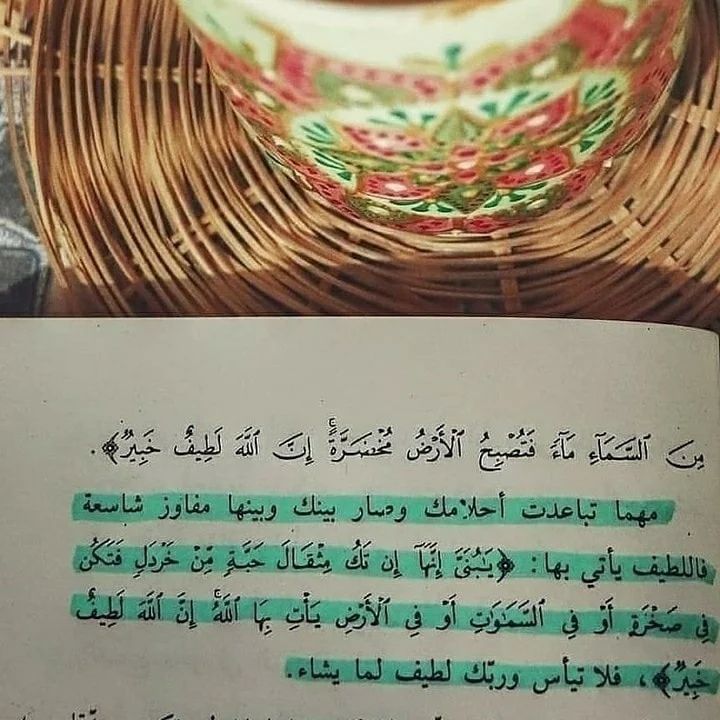 مِنَ ٱلسَّمَآءِ مَآءً فَتُصْبِحُ ٱلْأَرْضُ مُخْضَرَّةً ۗ إِنَّ ٱللَّهَ لَطِيفٌ خَبِيرٌ﴾.
مهما تباعدت أحلامك وصار بينك وبينها مفاوز شاسعة
فاللطيف يأتي بها: ﴿يَٰبُنَىَّ إِنَّهَآ إِن تَكُ مِثْقَالَ حَبَّةٍ مِّنْ خَرْدَلٍ فَتَكُن
فِى صَخْرَةٍ أَوْ فِى ٱلسَّمَٰوَٰتِ أَوْ فِى ٱلْأَرْضِ يَأْتِ بِهَا ٱللَّهُ ۚ إِنَّ ٱللَّهَ لَطِيفٌ
خَبِيرٌ﴾، فلا تيأس وربّك لطيف لما يشاء.